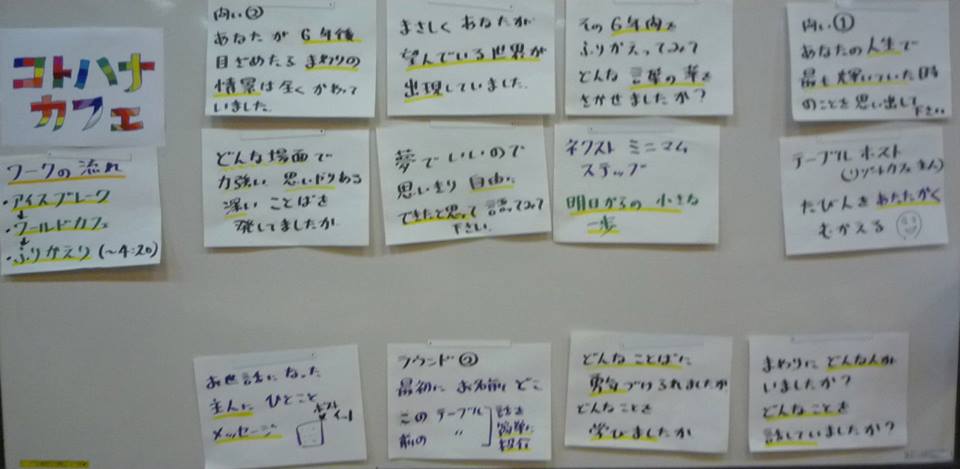 コトハナ
カフェ
問い②
あなたが 6年後
目ざめたる まわりの
情景は全くかわって
いました.
まさしくあなたが
望んでいる世界が
出現していました.
その6年内を
ふりかえってみて
どんな言葉の華を
さかせましたか?
問い①
あなたの人生で
最も輝いていた時
のことを思い出して
下さい
ワークの流れ
・アイスブレーク
↓
・ワールドカフェ
↓
・ふりかえり(〜4:20)
どんな場面で
力強い 思いやりある
深い ことばを
発してましたか
夢でいいので
思いきり自由に
できたと思って語ってみて
下さい.
ネクスト ミニマム
ステップ
明日からの小さな
一歩
テーブル ホスト
(リゾートカフェ主人)
たびんをあたたかく
むかえる
お世話になった
主人に ひとこと
メッセージ
ポスト
イット
ラウンド②
最初に お名前 どこ
このテーブル
前の 〃
話を
簡単に
紹介
どんなことばに
勇気づけられましたか
どんなことを
学びましたか
まわりに どんな人が
いましたか?
どんなことを
話していましたか?